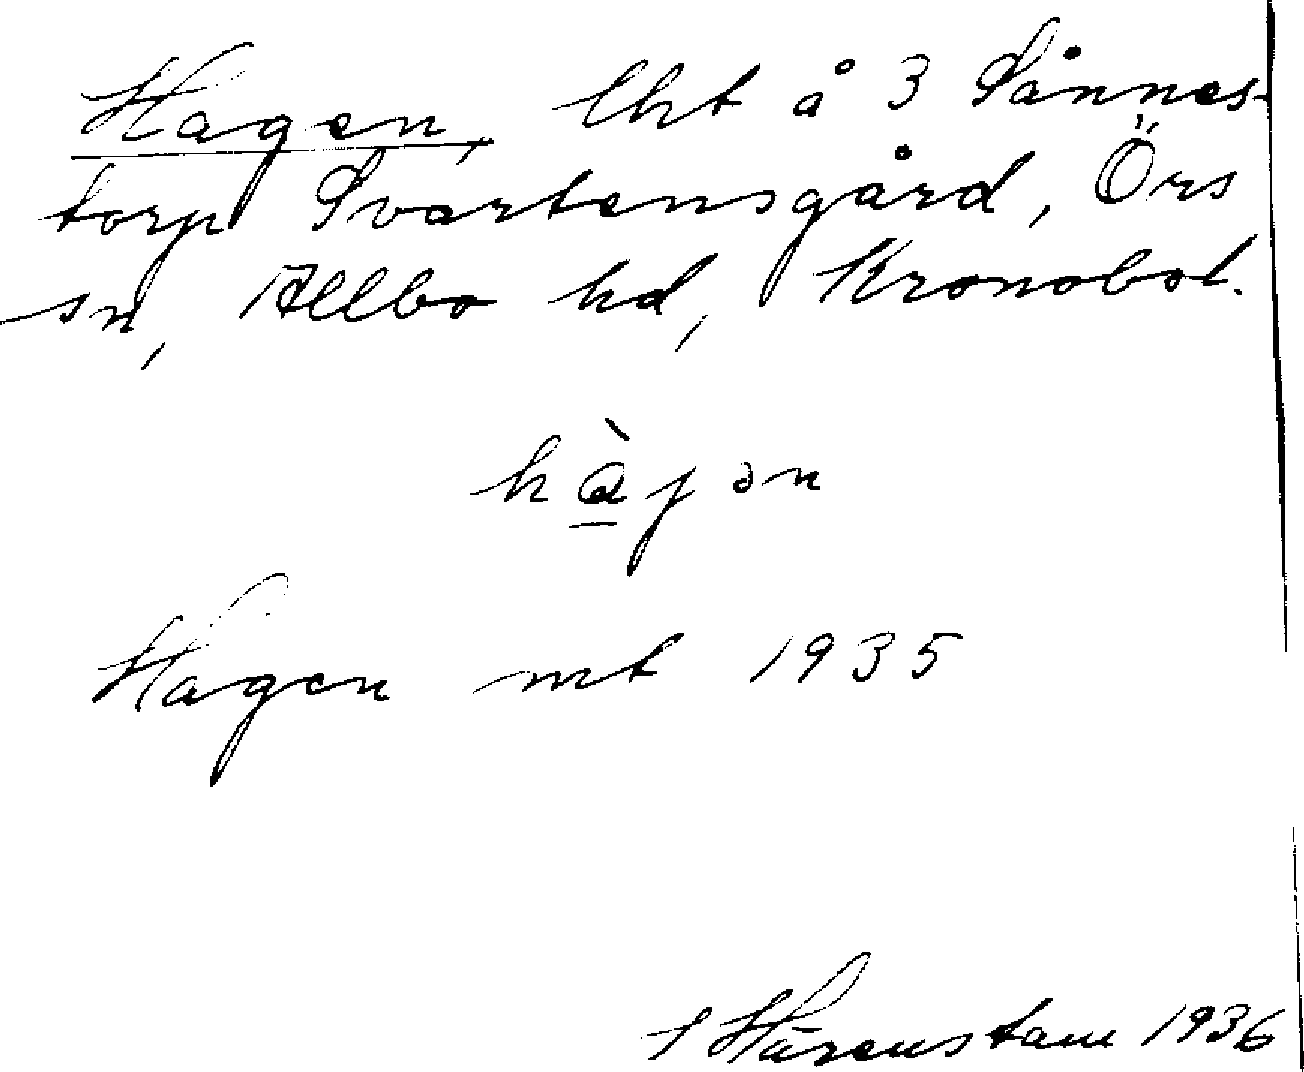 Hagen, lht å 3 Sånnes-
torp Svartensgård, Örs
sn, Allbo hd, Kronobol.
hàjən
Hagen mt 1935
S Härenstam 1936